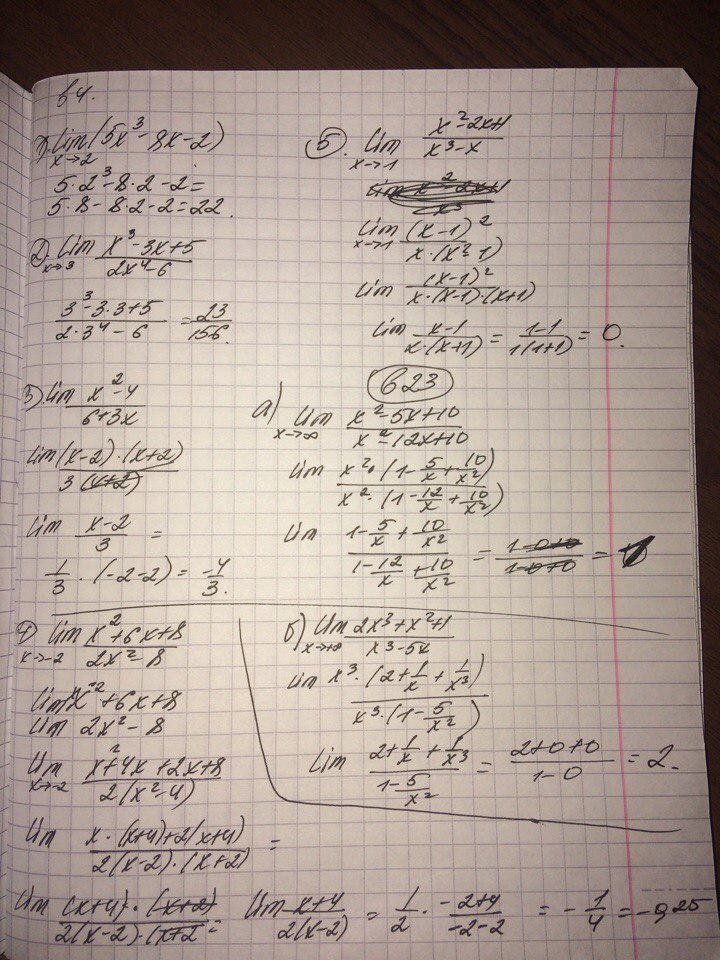 в4.
1) lim (5x³-8x-2)
x→2
5·2³-8·2-2=
5·8-8·2-2=22.
2) lim x³-3x+5 / 2x⁴-6
x→3
3³-3·3+5 / 2·3⁴-6 = 23 / 156.
3) lim x²-4 / 6+3x
lim (x-2)·(x+2) / 3(x+2)
lim x-2 / 3 =
1/3 ·(-2-2)= -4/3.
4) lim x²+6x+8 / 2x²-8
x→-2
lim x²+6x+8
lim 2x²-8
lim x²+4x+2x+8 / 2(x²-4)
x→-2
lim x·(x+4)+2(x+4) / 2(x-2)·(x+2) =
lim (x+4)·(x+2) / 2(x-2)·(x+2 = lim x+4 / 2(x-2) = 1/2 · -2+4 / -2-2 = -1/4 = -0,25
5. lim x²-2x+1 / x³-x
x→1
lim x²-2x+1 / x³
lim (x-1)² / x·(x²-1)
x→1
lim (x-1)² / x·(x-1)·(x+1)
lim x-1 / x·(x+1) = 1-1 / 1(1+1) = 0.
в23
а) lim x²-5x+10 / x²-12x+10
x→∞
lim x²·(1-5/x+10/x²) / x²·(1-12/x+10/x²)
lim 1-5/x+10/x² / 1-12/x+10/x² = 1-0+0 / 1-0+0 = 1
б) lim 2x³+x²+1 / x³-5x
x→+∞
lim x³·(2+1/x+1/x³) / x³·(1-5/x²)
lim 2+1/x+1/x³ / 1-5/x² = 2+0+0 / 1-0 = 2.